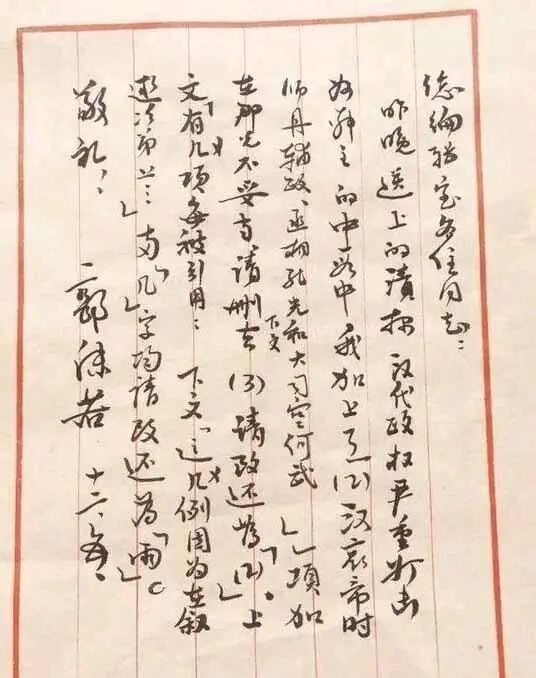 总编辑室各位同志：
昨晚送上的读报汉代政权严重打击
奴隶主的中段中我加上了「(2)汉哀帝时
师丹辅政、丞相孔光和大司空何武」一项加
在那儿不妥当请删去下文(3)请改还为「(2)」。上
文「有几项每被引用；下文「这几例因为在叙
述次第上」两「几」字均请改还为「两」。
敬礼！ 郭沫若 十二、